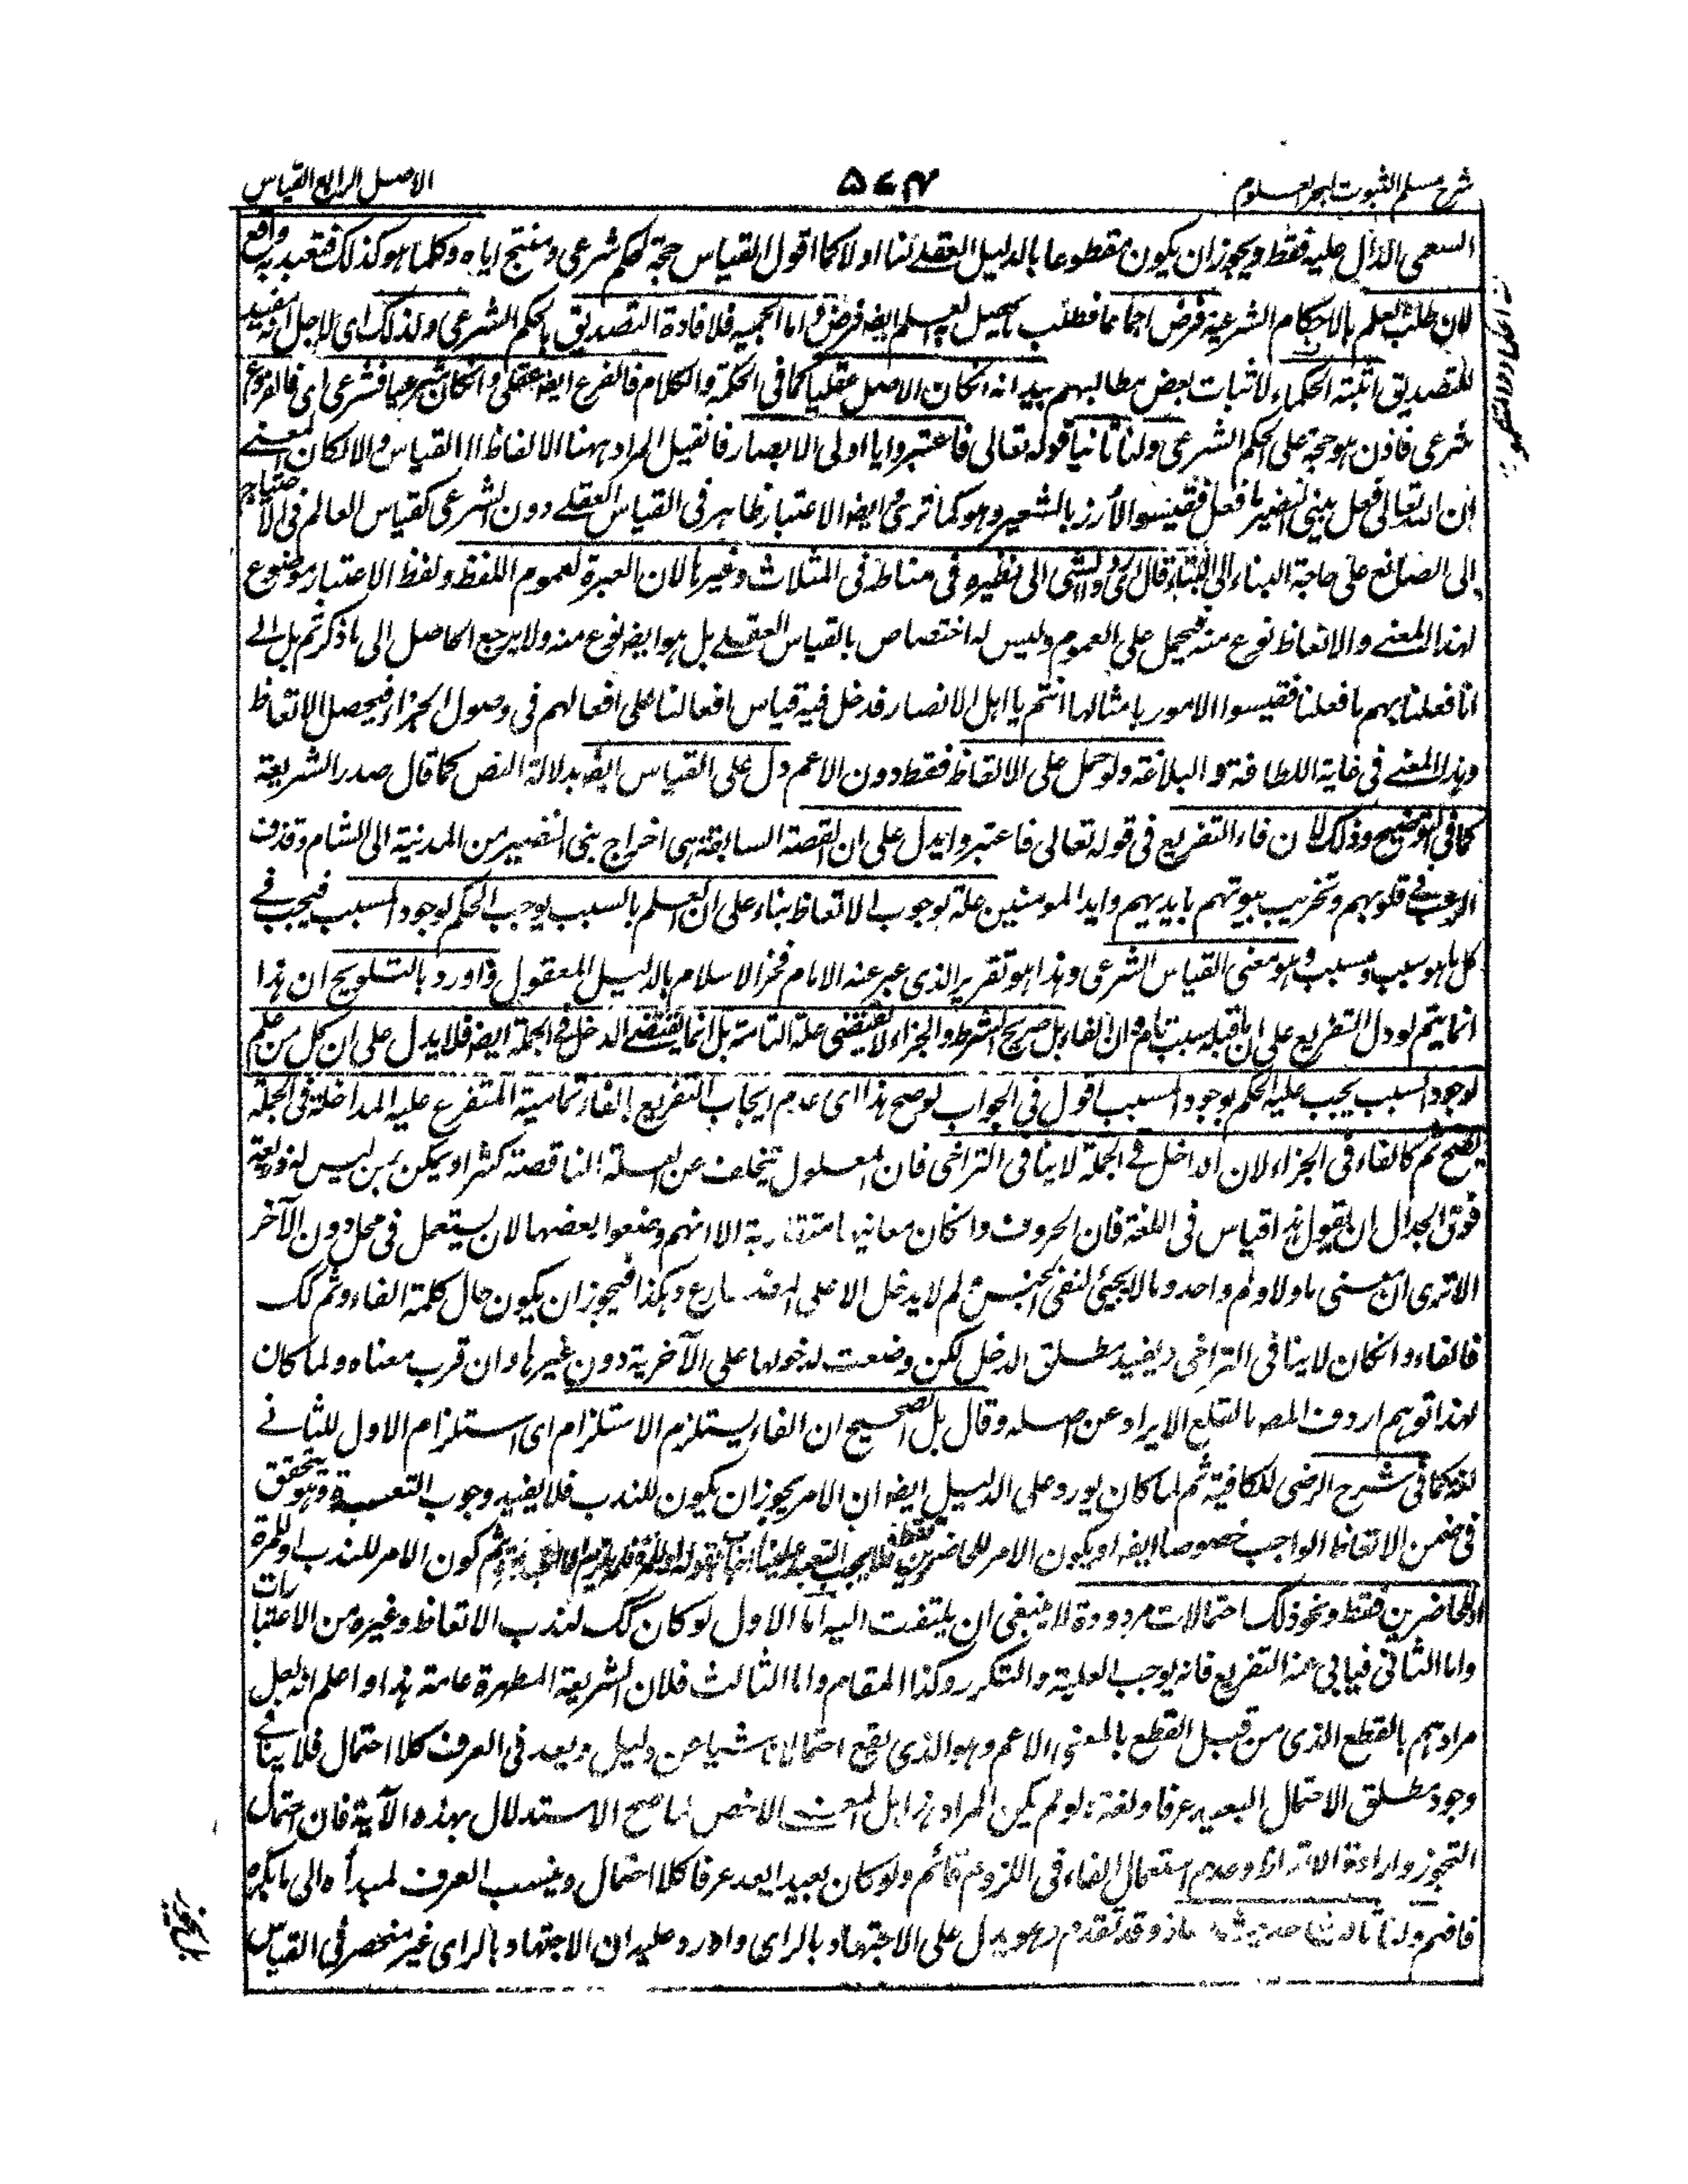 شرح مسلم الثبوت لبحر العلوم
۵۷۴
الاصل الرابع القياس
السمعى الدال عليه فقط ويجوز ان يكون مقطوعا بالدليل العقلے لنا اولا كما اقول القياس حجة لحكم شرعى ومنتج اياه وكلما هو كذلك فتعبد به واقع
لان طلب العلم بالاحكام الشرعية فرض اجماعا فطلب ما يحصل به العلم ايضه فرض واما الحجية فلافادة التصديق بالحكم الشرعى ولذلك اى لاجل انه مفيد
للتصديق اثبته الحكماء لاثبات بعض مطالبهم بيد انه انكان الاصل عقليا كما فى الحكمة والكلام فالفرع ايضه عقلى وانكان شرعيا فشرعى اى فالفرع
شرعى فاذن هو حجة على الحكم الشرعى ولنا ثانيا قوله تعالى فاعتبروا يا اولى الابصار فانقيل المراد ههنا الاتعاظ لا القياس والا لكان المعنے
ان الله تعالى فعل ببنى النضير ما فعل فقيسوا الارز بالشعير وهو كما ترى وايضه الاعتبار ظاهر فى القياس العقلے دون الشرعى كقياس العالم فى الاحتياج
الى الصانع على حاجة البناء الى البناء قال رد الشى الى نظيره فى مناطه فى المثلاث وغيرها لان العبرة لعموم اللفظ ولفظ الاعتبار موضوع
لهذا المعنے والاتعاظ نوع منه فيحمل على العموم وليس له اختصاص بالقياس العقلے بل هو ايضه نوع منه ولا يرجع الحاصل الى ما ذكرتم بل الے
انا فعلنا بهم ما فعلنا فقيسوا الامور بامثالها انتم يا اهل الابصار فدخل فيه قياس افعالنا على افعالهم فى وصول الجزاء فيحصل الاتعاظ
وهذا المعنے فى غاية اللطافة والبلاغة ولو حمل على الاتعاظ فقط دون الاعم دل على القياس ايضه بدلالة النص كما قال صدر الشريعة
كما فى التوضيح وذلك لان فاء التفريع فى قوله تعالى فاعتبروا يدل على ان القصة السابقة هى اخراج بنى النضير من المدينة الى الشام وقذف
الرعب فے قلوبهم وتخريب بيوتهم بايديهم وايدا المومنين علة لوجوب الاتعاظ بناء على ان العلم بالسبب يوجب الحكم لوجود المسبب فيجب فے
كل ما هو سبب ومسبب وهو معنى القياس الشرعى وهذا هو تقرير الذى عبر عنه الامام فخر الاسلام بالدليل المعقول واورد بالتلويح ان هذا
انما يتم لو دل التفريع على ان ما قبله سبب تام وان الفاء بل صريح الشرط والجزاء لا يقتضى علة التامة بل انما يقتضے الدخل فى الجملة ايضه فلا يدل على ان كل من علم
لوجود السبب يجب عليه الحكم بوجود المسبب اقول فى الجواب لو صح هذا اى عدم ايجاب التفريع بالفاء تمامية المتفرع عليه المداخلة فى الجملة
يصح ثم كالفاء فى الجزاء لان الداخل فے الجملة لا ينافى التراخى فان المعلول يتخلف عن العلة الناقصة كثيرا ويمكن لمن ليس له ذريعة
فوق الجدال ان يقول هذا قياس فى اللغة فان الحروف وانكان معانيها متقاربة الا انهم وضعوا بعضها لان يستعمل فى محل دون الآخر
الا ترى ان معنى ما ولا ولم واحد وما لا يجئ لنفى الجنس ثم لم لا يدخل الا على المضارع وهكذا فيجوز ان يكون حال كلمة الفاء وثم كك
فالفاء وانكان لا ينافى التراخى ويفيد مطلق الدخل لكن وضعت لدخولها على الآخرية دون غيرها وان قرب معناه ولما كان
لهذا توهم اردف المصه بالقلع الايراد عن اصله وقال بل الصحيح ان الفاء يستلزم الاستلزام اى استلزام الاول للثانے
لغة كما فى شرح الرضى للكافية ثم لما كان يورد على الدليل ايضه ان الامر يجوز ان يكون للندب فلا يفيد وجوب التعبد وهو تحقق
فى ضمن الاتعاظ الواجب خصوصا ايضه او يكون الامر للحاضرين فقط فلا يجب التعبد علينا كون الامر للندب او للمرة
او للحاضرين فقط ونحو ذلك احتمالات مردودة لا ينبغى ان يلتفت اليه اما الاول لو كان كك لندب الاتعاظ وغيره من الاعتبارات
واما الثانى فيابى عنه التفريع فانه يوجب العلية والتكرر وكذا المقام واما الثالث فلان الشريعة المطهرة عامة هذا واعلم انه لعل
مرادهم بالقطع الذى من قبيل القطع بالمعنى الاعم وهو الذى يقع احتمالا ناشيا عن دليل ويعد فى العرف كلا احتمال فلا ينافے
وجود مطلق الاحتمال البعيد عرفا ولغة ولو لم يكن المراد هذا بل المعنے الاخص لما صح الاستدلال بهذه الآية فان احتمال
التجوز وارادة الاتعاظ وعدم استعمال الفاء فى اللزوم قائم ولو كان بعيدا يعد عرفا كلا احتمال وينسب العرف لمبدأه الى ما يكره
فافهم ولنا ثالثا حديث معاذ وقد تقدم وهو يدل على الاجتهاد بالراى واورد عليه ان الاجتهاد بالراى غير منحصر فى القياس